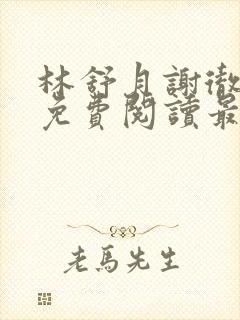 林舒月謝徹
免費閱讀最
老馬先生